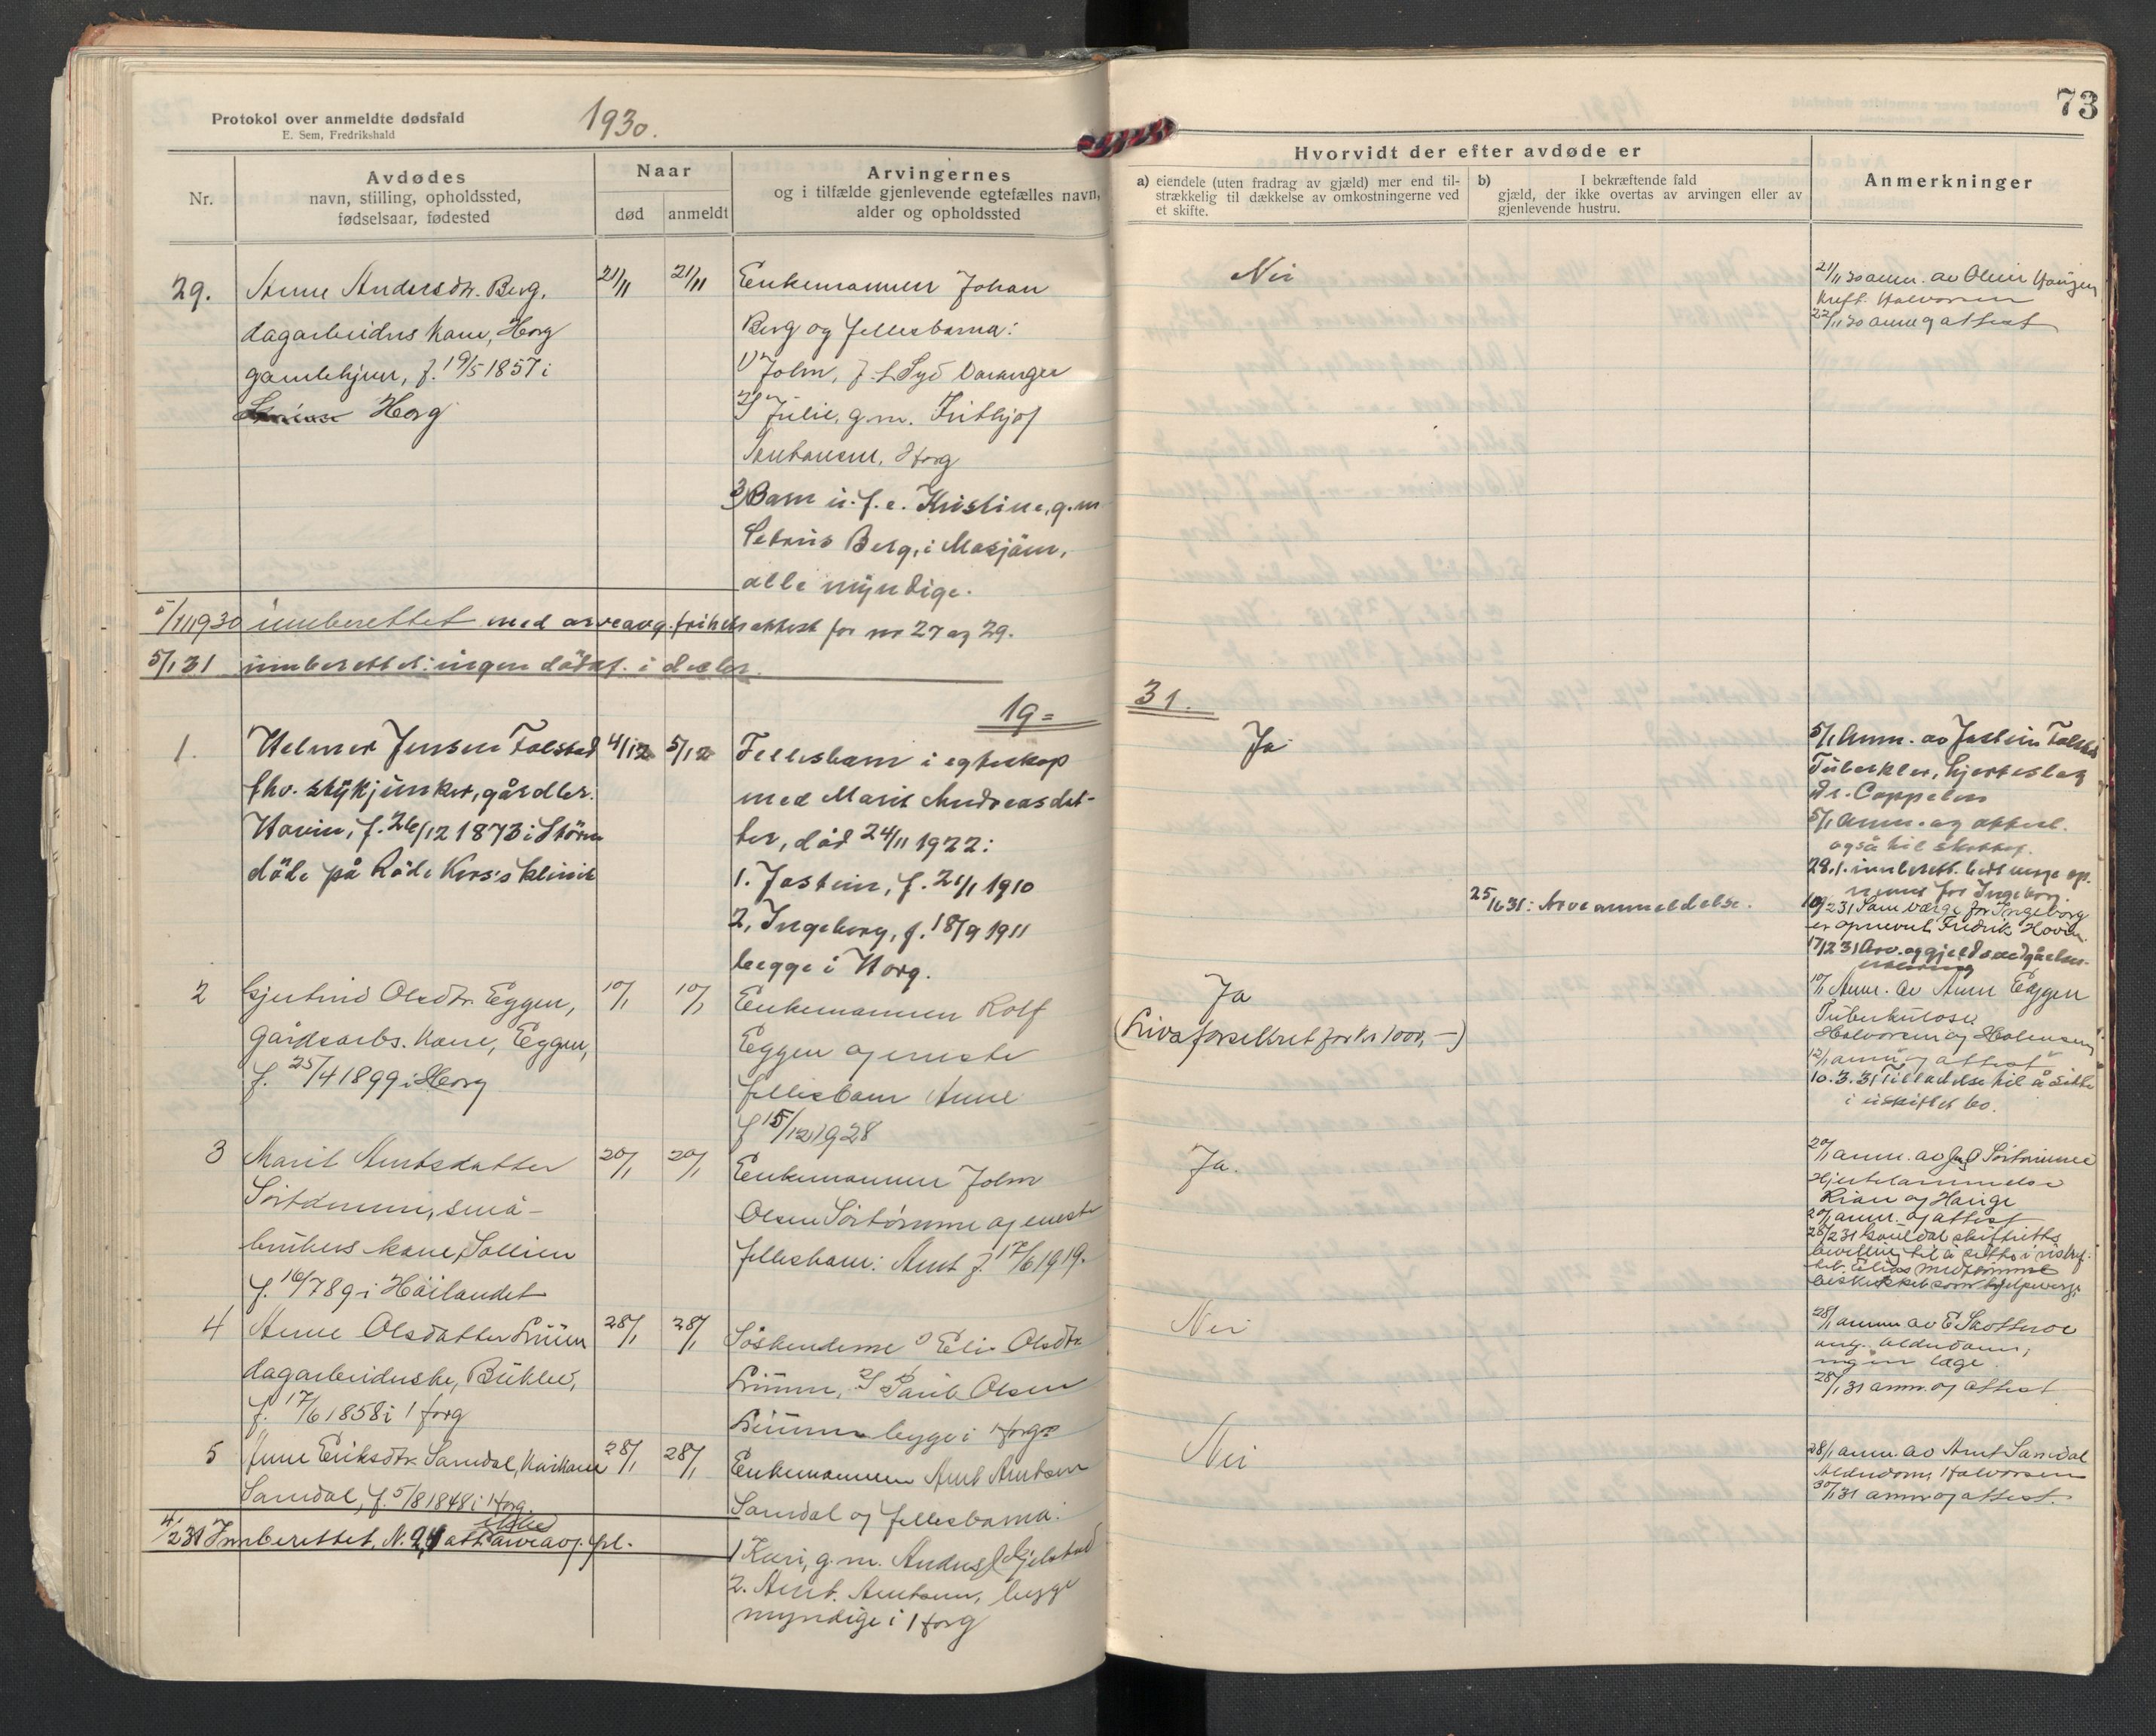 Protokol over anmeldte dødsfald
E. Sem, Fredrikshald
1930.
73
Nr.
Avdødes
navn, stilling, opholdssted,
fødselsaar, fødested
Naar
død
anmeldt
Arvingernes
og i tilfælde gjenlevende egtefælles navn,
alder og opholdssted
Hvorvidt der efter avdøde er
a) eiendele (uten fradrag av gjæld) mer end til-
strækkelig til dækkelse av omkostningerne ved
et skifte.
b) I bekræftende fald
gjæld, der ikke overtas av arvingen eller av
gjenlevende hustru.
Anmerkninger
29.
Anne Andersdtr. Berg,
dagarbeiders kone, Horg
gamlehjem, f. 19/5 1857 i
Horg
21/11
21/11
Enkemannen Johan
Berg og fellesbarna:
1) John, f. t. Syd Varanger
2) Julie, g.m. Frithjof
Horg
3) Barn u. f. e. Kristine, g.m
Berg, i Mosjøen,
alle myndige.
Nei
21/11 30 anm. av
Halvorsen
22/11 30 anm og attest
5/1 1930 innberettet med arveavg.frihetsattest for nr 27 og 29.
5/1 31 innberettet: ingen dødsf. i decbr.
19=
31.
1.
Helmer Jensen Folstad
fhv. stykjunker, gårdbr.
Hovin, f. 26/12 1873 i Støren
døde på Røde Kors's klinik
4/1
5/1
Fellesbarn i egteskap
med Marit Andreasdat-
ter, død 24/11 1922:
1. Jostein, f. 21/1 1910
2, Ingeborg, f. 18/9 1911
begge i Horg.
Ja
25/6 31: Arveanmeldelse.
5/1 Anm. av Jostein Folstad
Tuberkler, hjerteslag
Dr. Cappelen
5/1 Anm. og attest.
også til skattef.
28.1. innberett. bedt verge op-
nevnt for Ingeborg.
10/2 31 Som værge for Ingeborg
er opnevnt Fredrik Hovin
17/2 31 Arv. og gjeldsvedgåelses-
erklæring
2
Gjertrud Olsdtr. Eggen,
Gårdsarbs. kone, Eggen,
f. 25/4 1899 i Horg
10/1
10/1
Enkemannen Rolf
Eggen og eneste
fellesbarn Anne
f 15/12 1928
Ja
(Livsforsikret for kr 1000,-)
10/1 Anm. av Anne Eggen
Tuberkulose
Halvorsen og
12/1 anm og attest
10.3.31 Tilladelse til å sitte
i uskiftet bo.
3
Marit Arntsdatter
små-
brukers kone, Sollien
f. 16/7 89 i Høilandet
20/1
20/1
Enkemannen John
Olsen og eneste
fellesbarn: Arnt f. 17/6 1919.
Ja.
20/1 anm. av
Hjertelammelse
og Hauge
20/1 anm. og attest
Gauldal skifteretts
bevilling til å sitte i uskif-
tet.
beskikket som hjelpeverge
4
Anne Olsdatter
dagarbeiderske,
f. 17/6 1858 i Horg
28/1
28/1
Søskenderne 1) Eli Olsdtr.
Olsen
begge i Horg
Nei
28/1 anm av E
ang. alderdom,
ingen læge.
28/1 31 anm. og attest
5
Anne Eriksdtr. Samdal,
Samdal, f. 5/8 1848 i Horg.
28/1
28/1
Enkemannen Arnt Arntsen
Samdal og fellesbarna:
1 Kari, g.m. Anders Gjelstad
2. Arnt. Arntsen, begge
myndige i Horg
Nei
28/1 anm. av Arnt Samdal
Alderdom, Halvorsen
30/1 31 anm og attest.
4/2 31 Innberettet. N. 2, 4 att arveavg. fri.